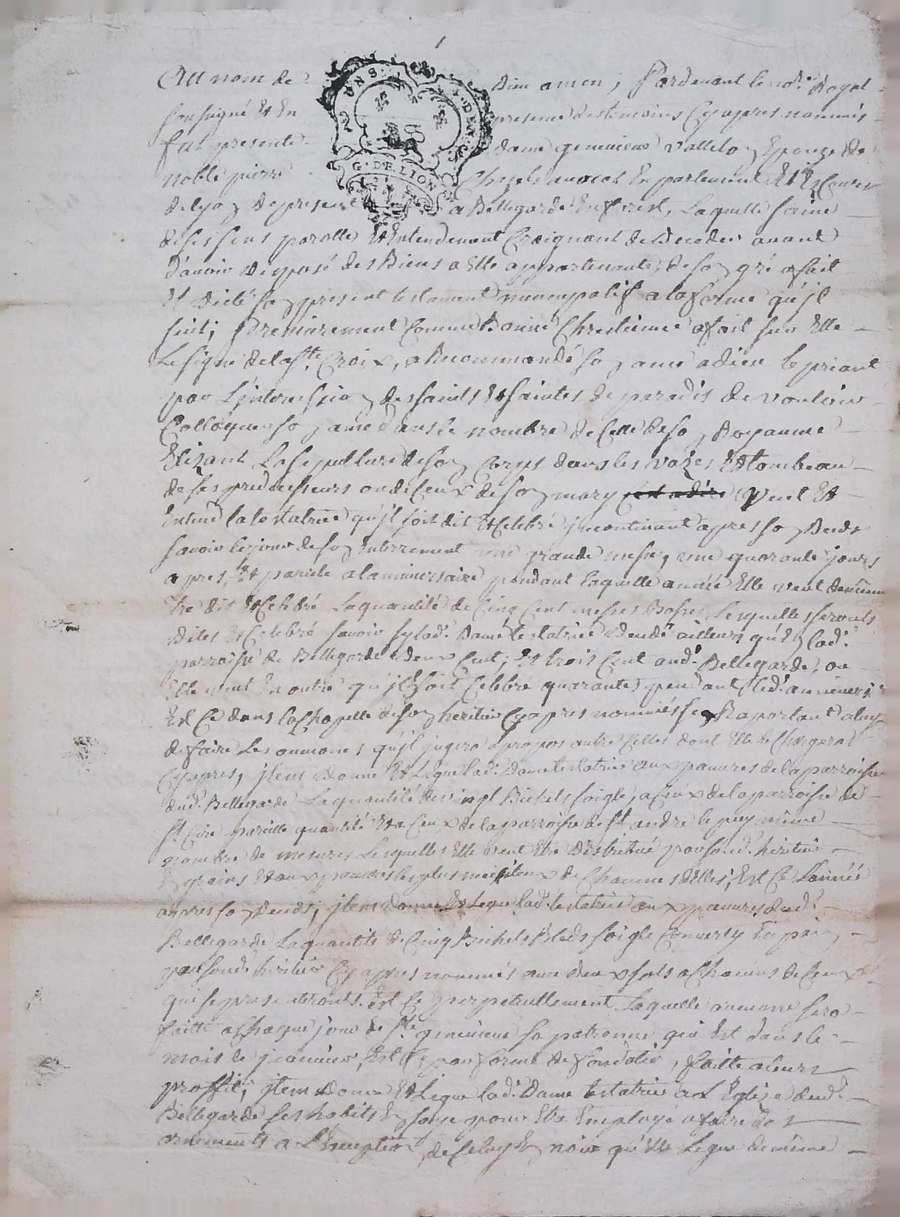 Au nom de Dieu amen, Pardevant le no.re Royal
soussigné Et En presence des temoins Cy apres nommés
fut presente dame genevieve Valleto Epouse de
noble pierre avocat En parlement Et Es Cours
de lyon De present a Bellegarde En forest, Laquelle saine
de ses sens parolle Et Entendement Craignant de Deceder avant
d'avoir Disposé des Biens a Elle appartenants de son gré a fait
Et Dicté son present testament nuncupatif a la forme qu'il
suit; Premierement Comme Bonne Chrestienne a fait sur Elle
Le signe de la ste Croix, a Recommandé son ame a dieu le priant
par L'intercession des saints Et saintes de paradis de vouloir
Colloquer son ame dans le nombre de Celle de son Royaume
Elizant La sepulture de son Corps dans les vazes Et tombeau
de ses predecesseurs ou de Ceux de son mary Veut Et
Entend la testatrice qu'il soit dit Et Celebré incontinent apres son Deceds
savoir le jour de son Enterrement une grande messe, une quarante jours
apres, Et pareille a l'anniversaire pendant laquelle année Elle veut
Etre dit Et Celebré La quantité de Cinq Cent messes Basse Lesquelles seronts
Dites Et Celebré savoir sy lad. Dame testatrice decede ailleurs qu'En lad.
parroisse de Bellegarde deux Cent; Et trois Cent aud. Bellegarde, ou
Elle veut En outre qu'il soit Celebré quarante pendant led. anniversaire
Est Ce dans la Chapelle de son heritier Cy apres nommé se Raportant a luy
de faire Les aumones qu'il jugera a propos outre Celles dont Elle le Chargera
Cy apres, jtem donne Et Legue lad. Dame testatrice aux pauvres de la parroisse
dud. Bellegarde La quantité de vingt Bichets soigle, a Ceux de la parroisse de
st. Cire pareille quantité Et a Ceux de la parroisse de st. andre le puy même
nombre de mesures Lesquelles Elle veut Etre Distribué par sond. heritier
En grains Et aux pauvres les plus necessiteux de Chacune d'Elles, Est Ce L'année
apres son Deceds; jtem donne Et Legue lad. testatrice aux pauvres dud.
Bellegarde La quantité de Cinq Bichets Bled soigle Converty En pain,
par sond. heritier Cy apres nommés avec deux sols a Chacuns de Ceux
qui se presenteronts. Est Ce perpetuellement Laquelle aumone sera
faitte a Chaque jour de ste. genevieve sa patronne qui Est dans le
mois de janvier, Est Ce par forme de fondation, faitte a leurs
proffit; jtem donne Et Legue lad. Dame testatrice a L'Eglise dud.
Bellegarde ses habits En soye pour Etre Employé a faire des
ornements a L'Exception de Celuy En noir qu'Elle Legue de même
G. DE LION